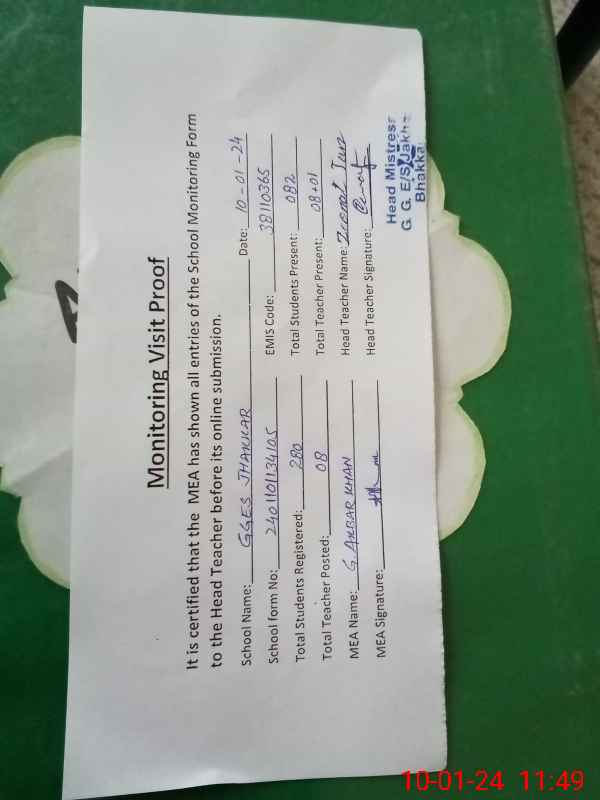 Monitoring Visit Proof
It is certified that the MEA has shown all entries of the School Monitoring Form
to the Head Teacher before its online submission.
School Name: GGES JHAKKAR Date: 10-01-24
School form No: 2401101134105 EMIS Code: 38110365
Total Students Registered: 280 Total Students Present: 082
Total Teacher Posted: 08 Total Teacher Present: 08+01
MEA Name: G. AKBAR KHAN Head Teacher Name:
MEA Signature: Head Teacher Signature:
Head Mistress
G. G. E/S Jakha
Bhakka
10-01-24 11:49